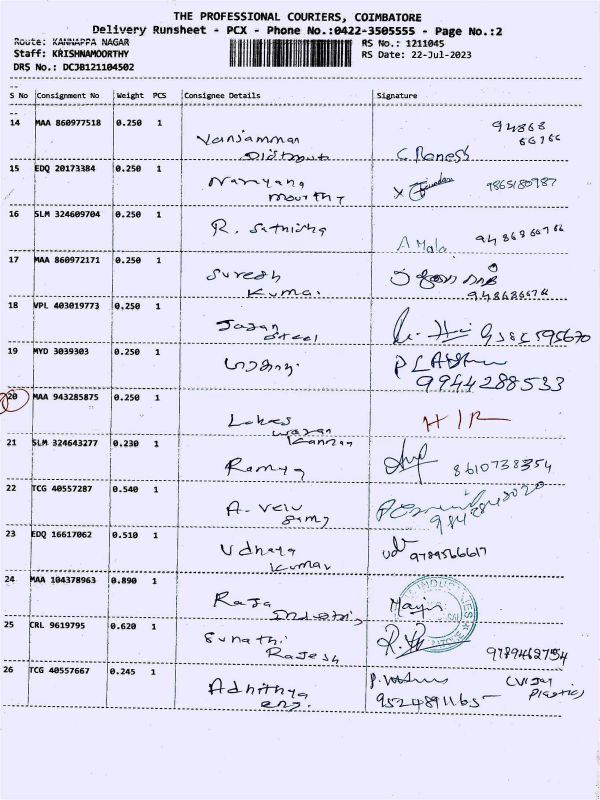 THE PROFESSIONAL COURIERS, COIMBATORE
Delivery Runsheet - PCX - Phone No.:0422-3505555 - Page No.:2
Route: KANNAPPA NAGAR RS No.: 1211045
Staff: KRISHNAMOORTHY RS Date: 22-Jul-2023
DRS No.: DCJB121104502
S No Consignment No Weight PCS Consignee Details Signature
14 MAA 860977518 0.250 1 94868
66766
15 EDQ 20173384 0.250 1 Narayana 9865180987
mourthy
16 SLM 324609704 0.250 1 R. Sathisha A Mala 9486866766
17 MAA 860972171 0.250 1 Suresh
Kumar
18 VPL 403019773 0.250 1 Jagan
Steel
19 MYD 3039303 0.250 1
9944288533
20 MAA 943285875 0.250 1
21 SLM 324643277 0.230 1 Ramya 8610738354
22 TCG 40557287 0.540 1 A. Velu
Samy
23 EDQ 16617062 0.510 1 Udhaya 9789566617
Kumar
24 MAA 104378963 0.890 1 Raja
25 CRL 9619795 0.620 1 9789462754
Rajesh
26 TCG 40557667 0.245 1 Adhithya (Vijay
eng. 9524891165 Plastics)